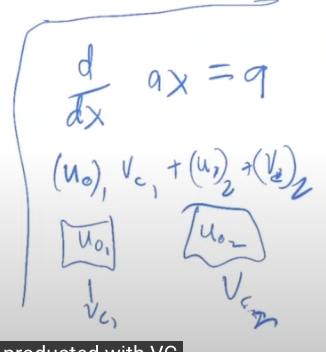 d/dx ax = a
(u₀)₁ V_c₁ + (u₁)₂ + (V_2)₂
u₀₁ u₀₂
V_c₁ V_c₂
producted with VC